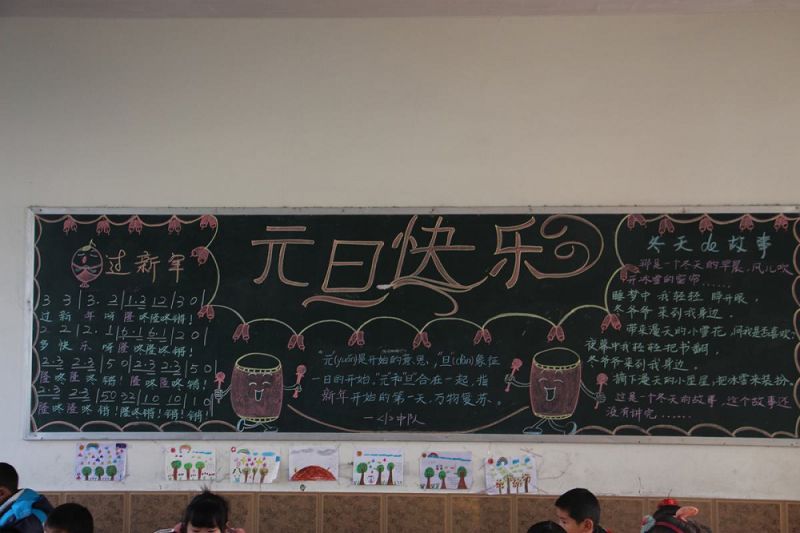 元旦快乐
过新年
3 3 | 3. 2 | 1.2 1 2 | 3 0 |
过 新 年 呀 隆咚隆咚锵！
2 2 | 2. 1 | 6.1 6 1 | 2 0 |
多 快 乐 呀 隆咚隆咚锵！
2.3 2 3 | 5 0 | 2.3 2 3 | 5 0 |
隆咚 隆咚 锵！ 隆咚 隆咚 锵！
2.3 2 3 | 5 0 3 2 | 1 0 | 1 0 | 1 0 |
隆咚 隆咚 锵！隆咚 锵！锵！锵！
"元"(yuán)是开始的意思，"旦"(dàn)象征
一日的开始。"元"和"旦"合在一起，指
新年开始的第一天，万物复苏。
中队
冬天de故事
那是一个冬天的早晨，风儿吹
开冰雪的窗帘……
睡梦中我轻轻睁开眼，
冬爷爷来到我身边。
带来漫天的小雪花，问我是否喜欢；
夜幕中我轻轻把书翻，
冬爷爷来到我身边。
摘下漫天的小星星，把冰雪来装扮。
这是一个冬天的故事，这个故事还
没有讲完……